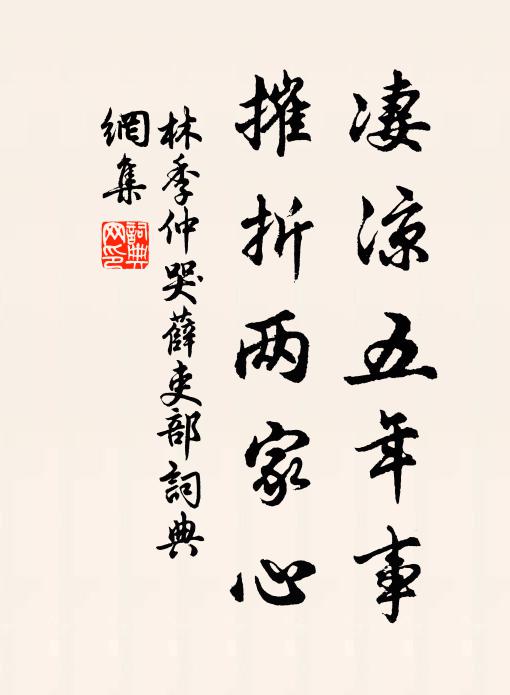 凄涼五年事
摧折两家心
林季仲哭薛吏部詞典
網集
詞典网印